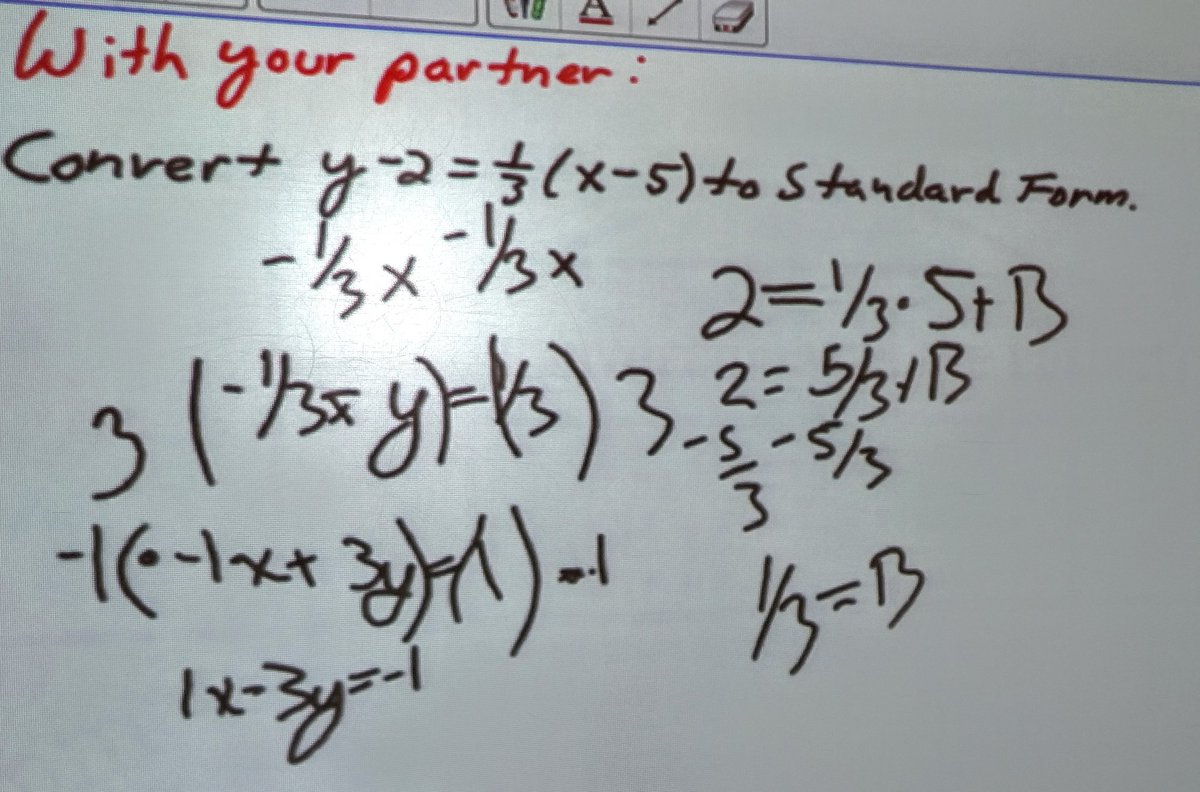 With your partner:
Convert y-2=1/3(x-5) to Standard Form.
-1/3x -1/3x
3(-1/3x y)=(1/3)3
-1(-1x+3y)=(1)-1
1x-3y=-1
2=1/3·5+B
2=5/3+B
-5/3 -5/3
1/3=B